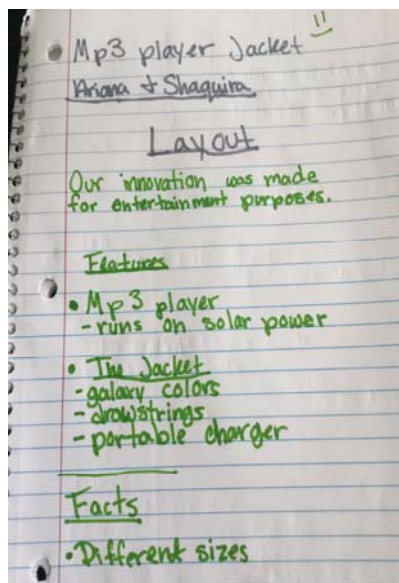 Mp3 player Jacket
Ariana & Shaquira
Layout
Our innovation was made
for entertainment purposes.
Features
• Mp3 player
- runs on solar power
• The Jacket
- galaxy colors
- drawstrings
- portable charger
Facts
• Different sizes